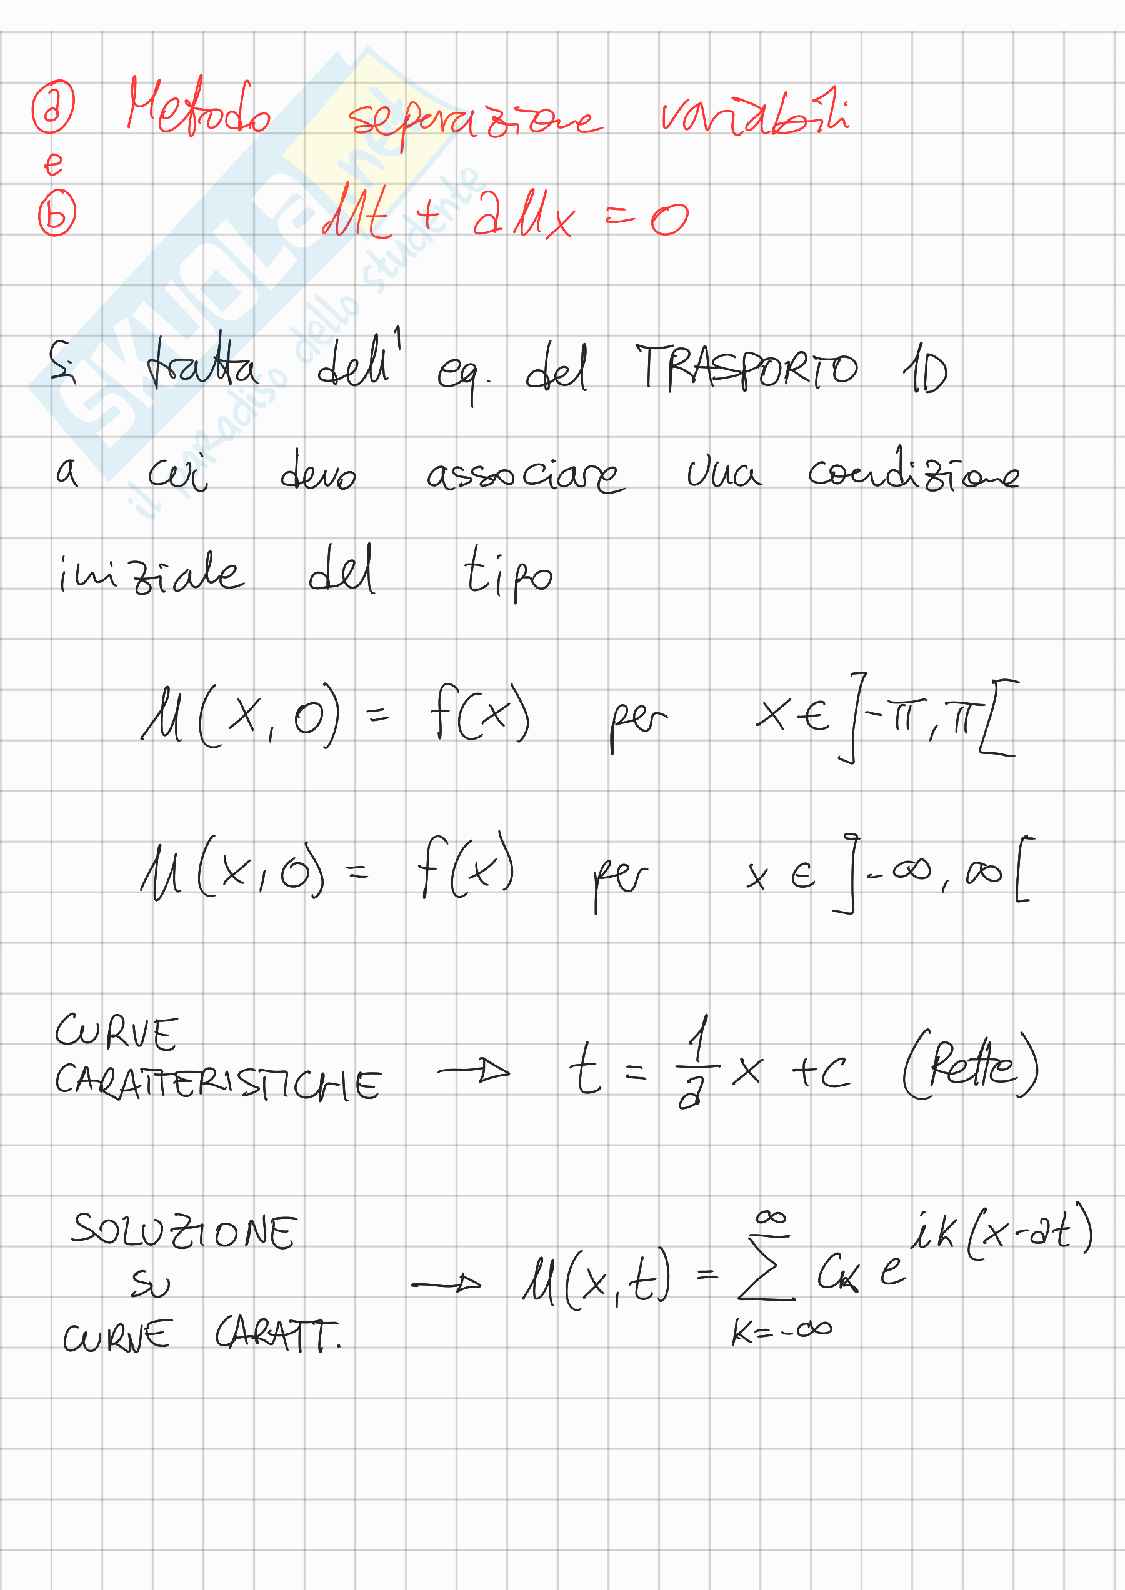 ⓐ Metodo separazione variabili
e
ⓑ Ut + aUx = 0
Si tratta dell' eq. del TRASPORTO 1D
a cui devo associare una condizione
iniziale del tipo
U(x,0) = f(x) per x ∈ ]-π,π[
U(x,0) = f(x) per x ∈ ]-∞,∞[
CURVE
CARATTERISTICHE → t = 1/a x + c (Rette)
SOLUZIONE
SU
CURVE CARATT. → U(x,t) = ∑_{k=-∞}^{∞} Ck e^{ik(x-at)}
SKUOLA.net
il paradiso dello studente